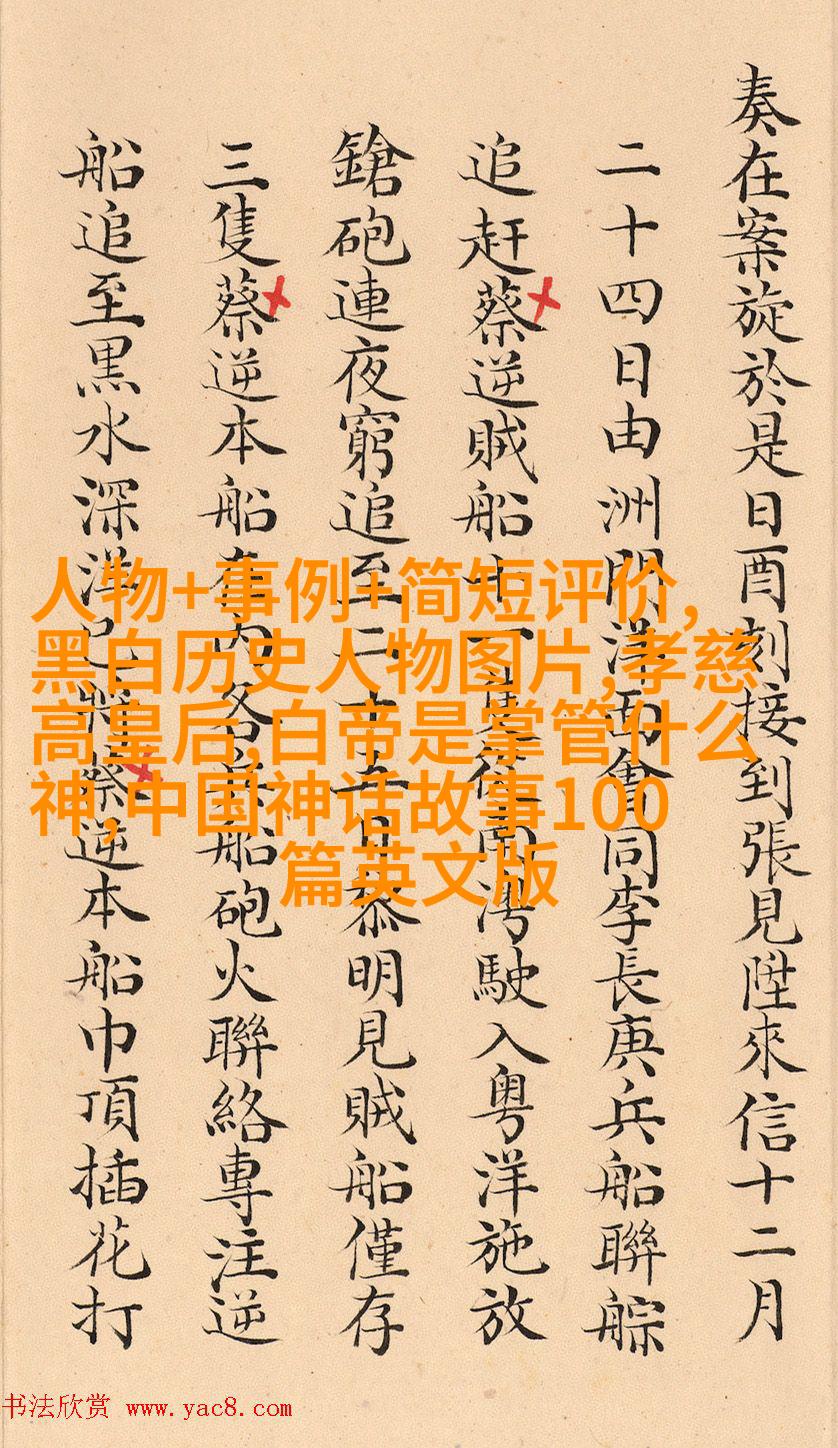 奏在案旋於是日酉刻接到張見陞來信十二月
二十四日由洲門洋面會同李長庚兵船聯䑸
追赶蔡逆賊船灣駛入粤洋施放
鎗砲連夜窮追至二十五日黎明見賊船僅存
三隻蔡逆本船在内各兵船砲火聯絡專注逆
船追至黒水深洋已將蔡逆本船巾頂插花打
人物+事例+简短评价,
黑白历史人物图片,孝慈
高皇后,白帝是掌管什么
神,中国神话故事100
篇英文版
书法欣赏 www.yac8.com